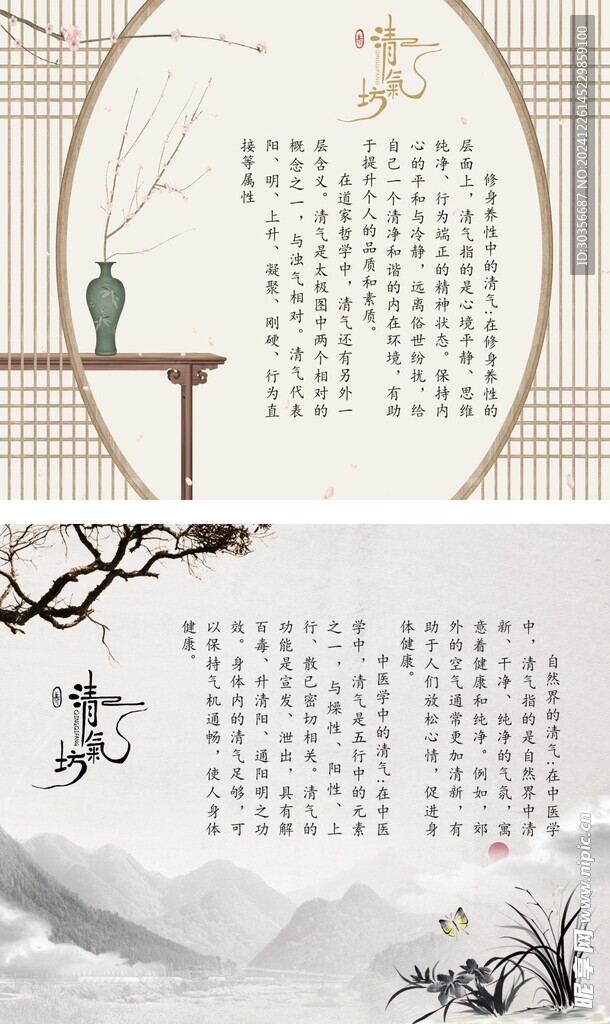 清氣坊
修身养性中的清气:在修身养性的
层面上，清气指的是心境平静、思维
纯净、行为端正的精神状态。保持内
心的平和与冷静，远离俗世纷扰，给
自己一个清净和谐的内在环境，有助
于提升个人的品质和素质。
在道家哲学中，清气还有另外一
层含义。清气是太极图中两个相对的
概念之一，与浊气相对。清气代表
阳、明、上升、凝聚、刚硬、行为直
接等属性
ID:30356687 NO.20241226145229859100
自然界的清气:在中医学
中，清气指的是自然界中清
新、干净、纯净的气氛，寓
意着健康和纯净。例如，郊
外的空气通常更加清新，有
助于人们放松心情，促进身
体健康。
中医学中的清气:在中医
学中，清气是五行中的元素
之一，与燥性、阳性、上
行、散已密切相关。清气的
功能是宣发、泄出，具有解
百毒、升清阳、通阳明之功
效。身体内的清气足够，可
以保持气机通畅，使人身体
健康。
清氣坊
QINGQIFANG
昵享网 www.nipic.cn